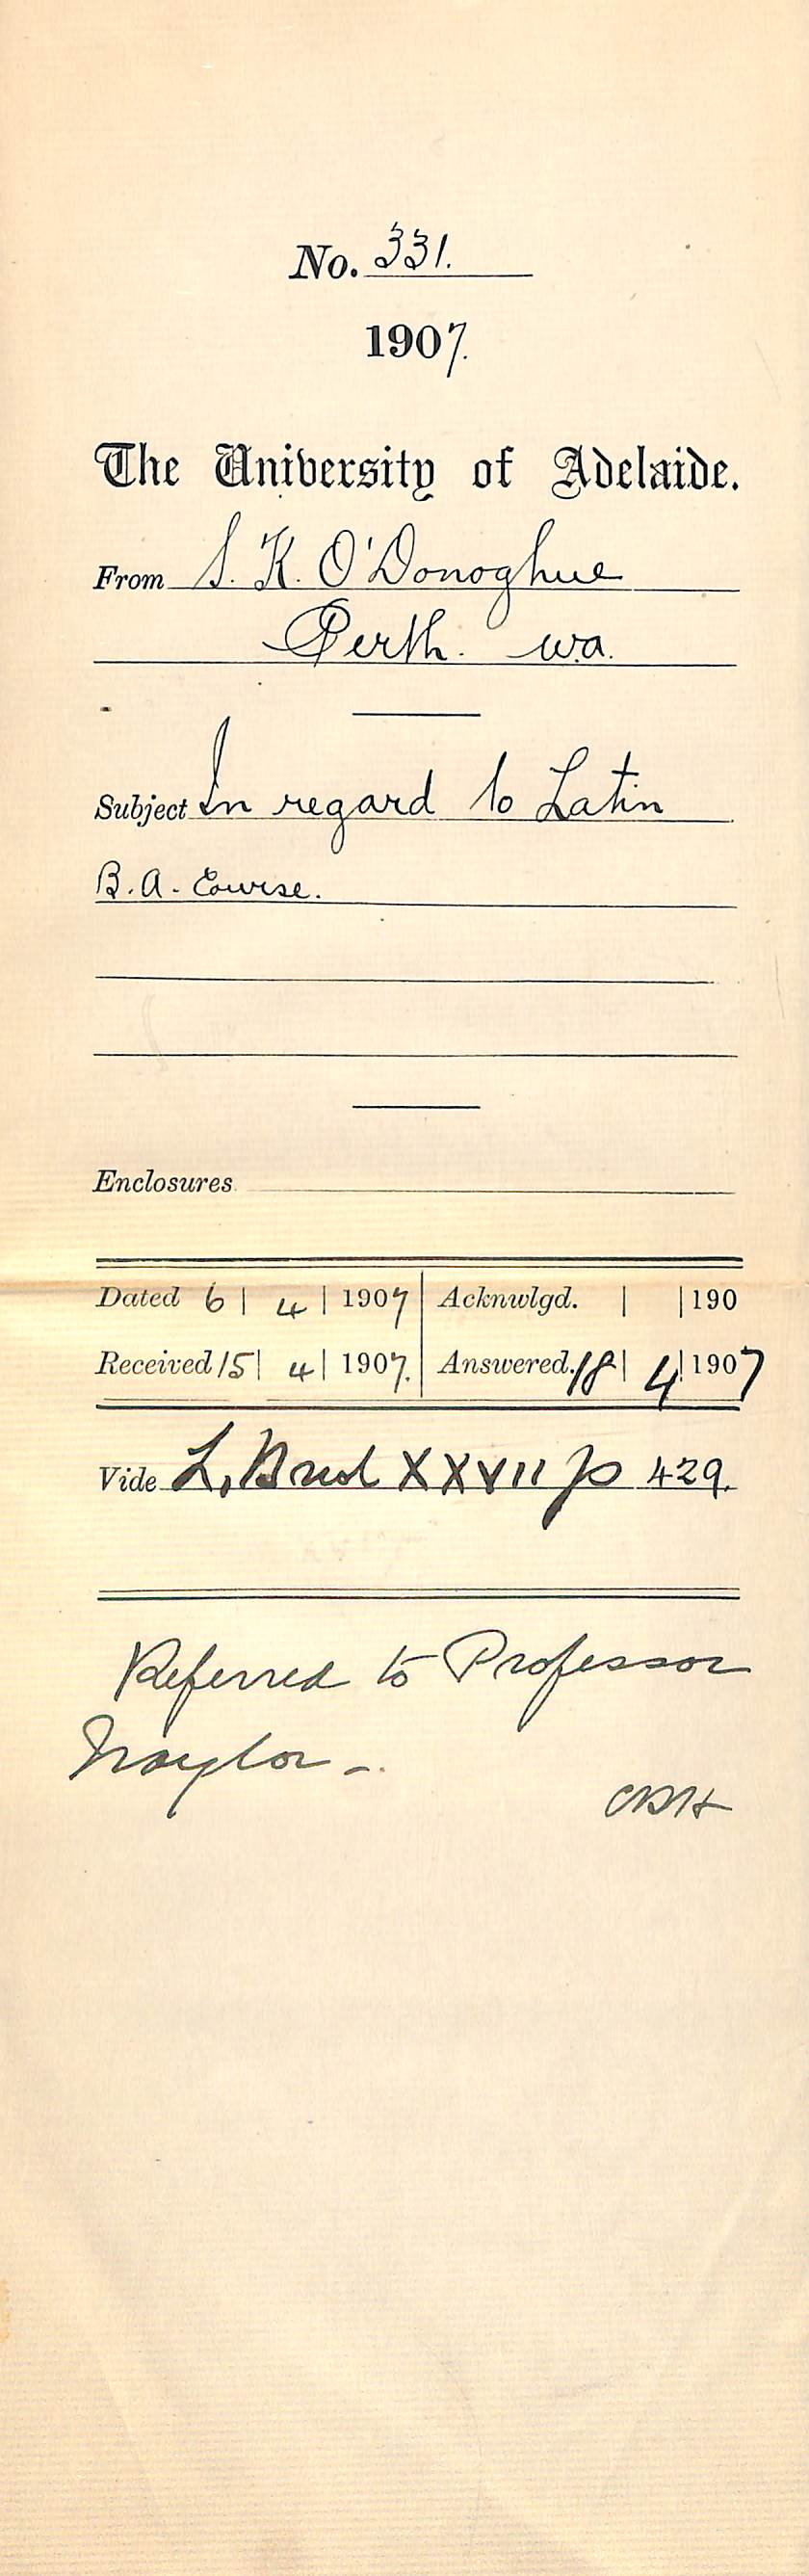 No. 331.
1907.
The University of Adelaide.
From S. K. O'Donoghue
Perth. W.a.
Subject In regard to Latin
B.A. Course.
Enclosures
Dated 6 | 4 | 1907 | Acknwlgd. | | 190
Received 15 | 4 | 1907. | Answered. 18 | 4 | 1907
Vide L, XXVII p 429.
Referred to Professor
Naylor -.